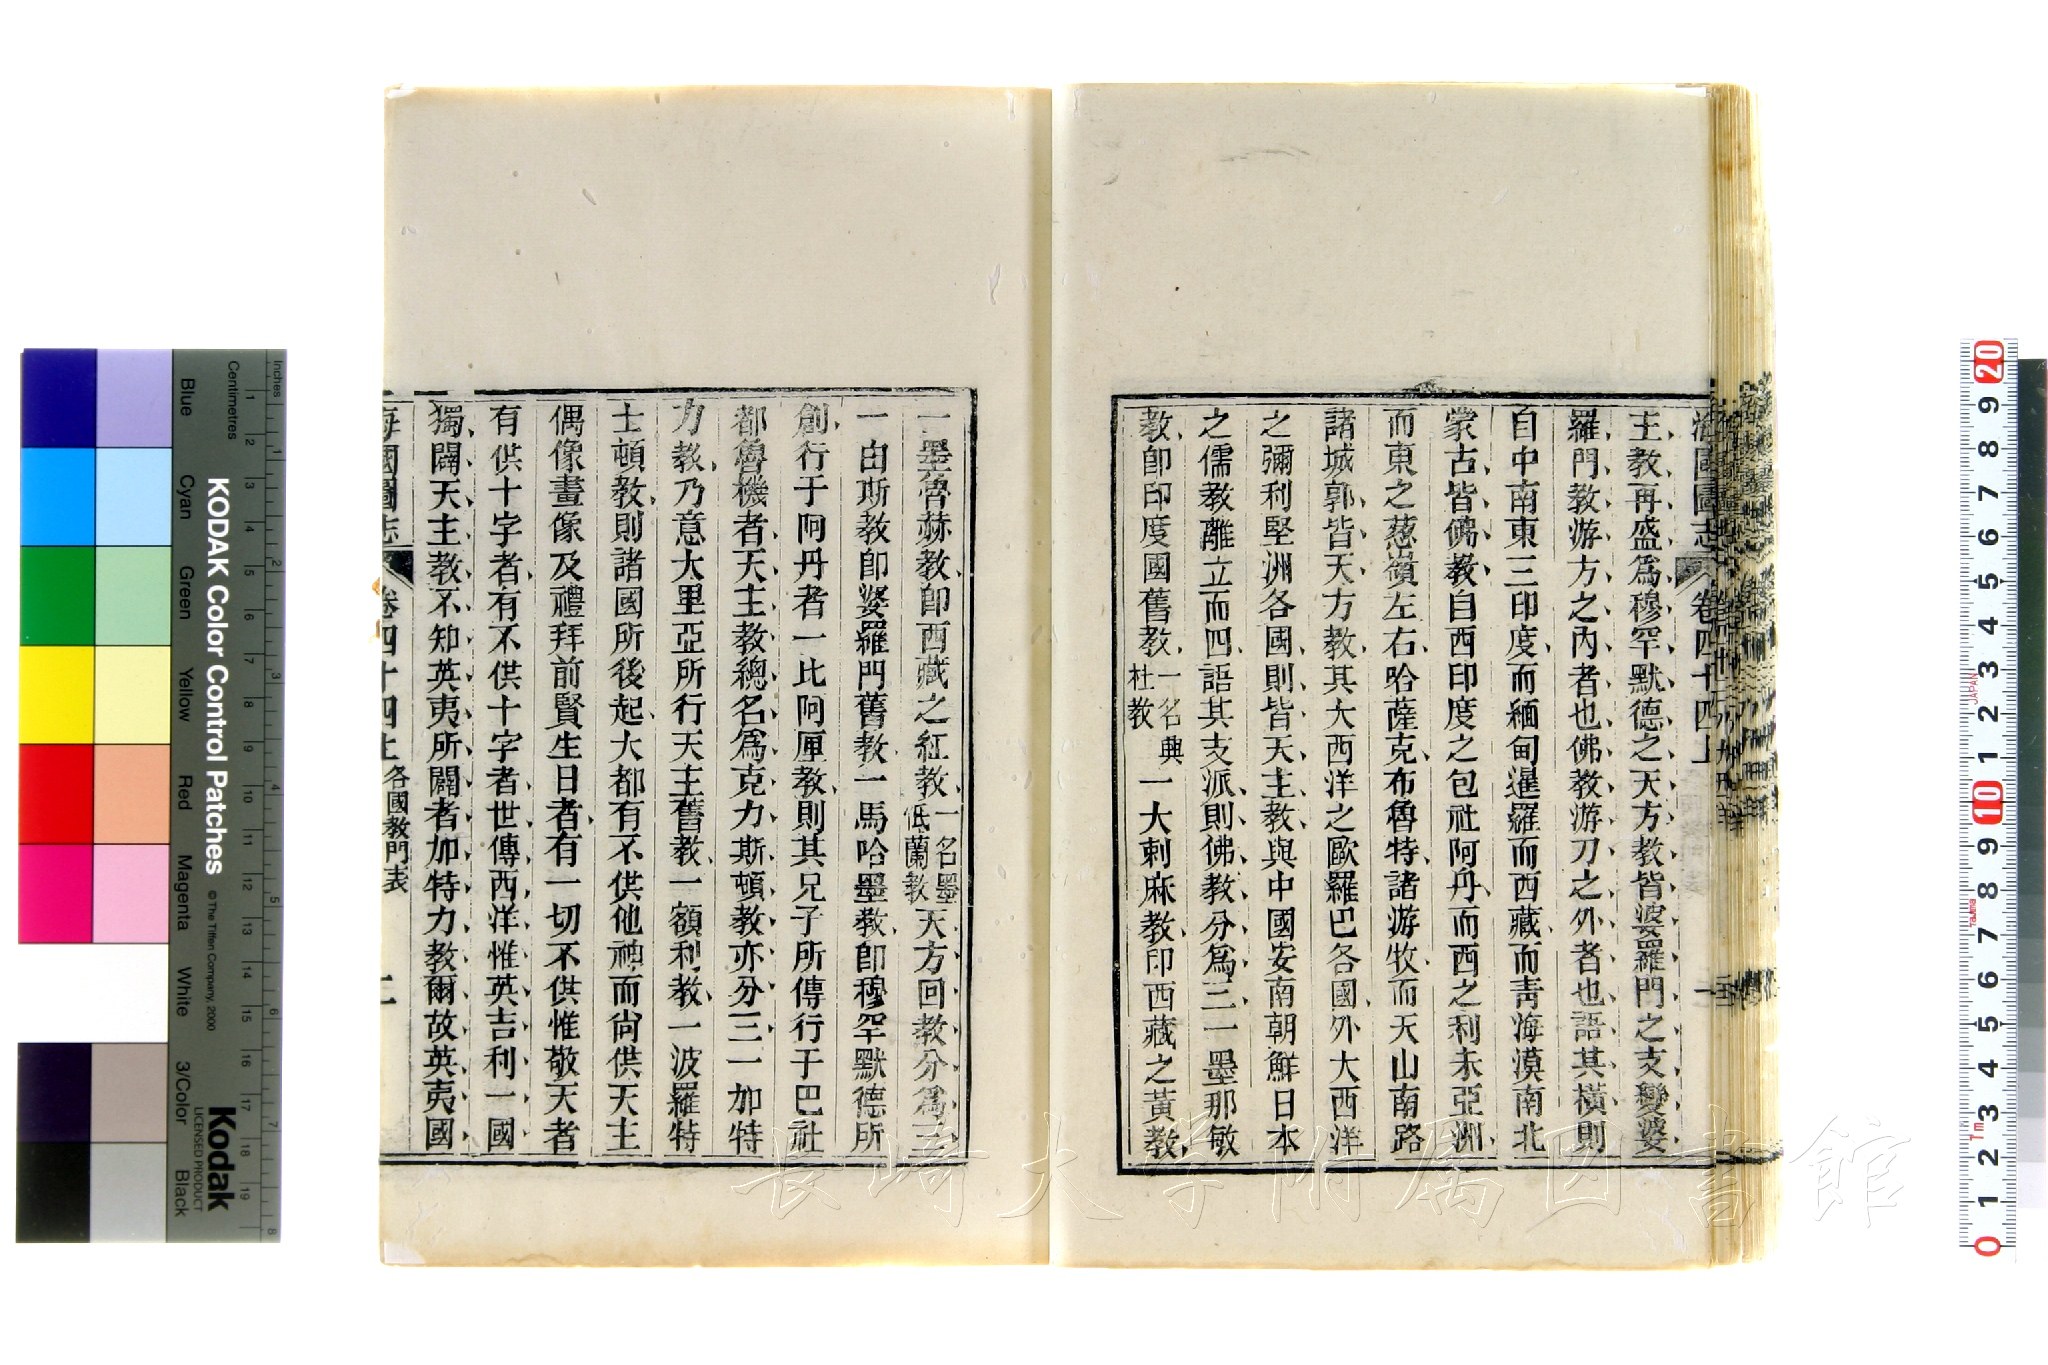 海國圖志 卷四十四上 一
主教再盛爲穆罕默德之天方教皆婆羅門之支變婆
羅門教游方之內者也佛教游刀之外者也語其橫則
自中南東三印度而緬甸暹羅而西藏而青海漠南北
蒙古皆佛教自西印度之包社阿丹而西之利未亞洲
而東之葱嶺左右哈薩克布魯特諸游牧而天山南路
諸城郭皆天方教其大西洋之歐羅巴各國外大西洋
之彌利堅洲各國則皆天主教與中國安南朝鮮日本
之儒教離立而四語其支派則佛教分爲三一墨那敏
教卽印度國舊教一名典杜教一大剌麻教印西藏之黃教
一墨魯赫教卽西藏之紅教一名墨低蘭教天方回教分爲三
一由斯教卽婆羅門舊教一馬哈墨教卽穆罕默德所
創行于阿丹者一比阿厘教則其兄子所傳行于巴社
都魯機者天主教總名爲克力斯頓教亦分三一加特
力教乃意大里亞所行天主舊教一額利教一波羅特
士頓教則諸國所後起大都有不供他神而尙供天主
偶像畫像及禮拜前賢生日者有一切不供惟敬天者
有供十字者有不供十字者世傳西洋惟英吉利一國
獨闢天主教不知英夷所闢者加特力教爾故英夷國
海國圖志 卷四十四上 各國教門表 二
KODAK Color Control Patches
© The Tiffen Company, 2000
Kodak
LICENSED PRODUCT
Inches
Centimetres
Blue
Cyan
Green
Yellow
Red
Magenta
White
3/Color
Black
長崎大学附属図書館